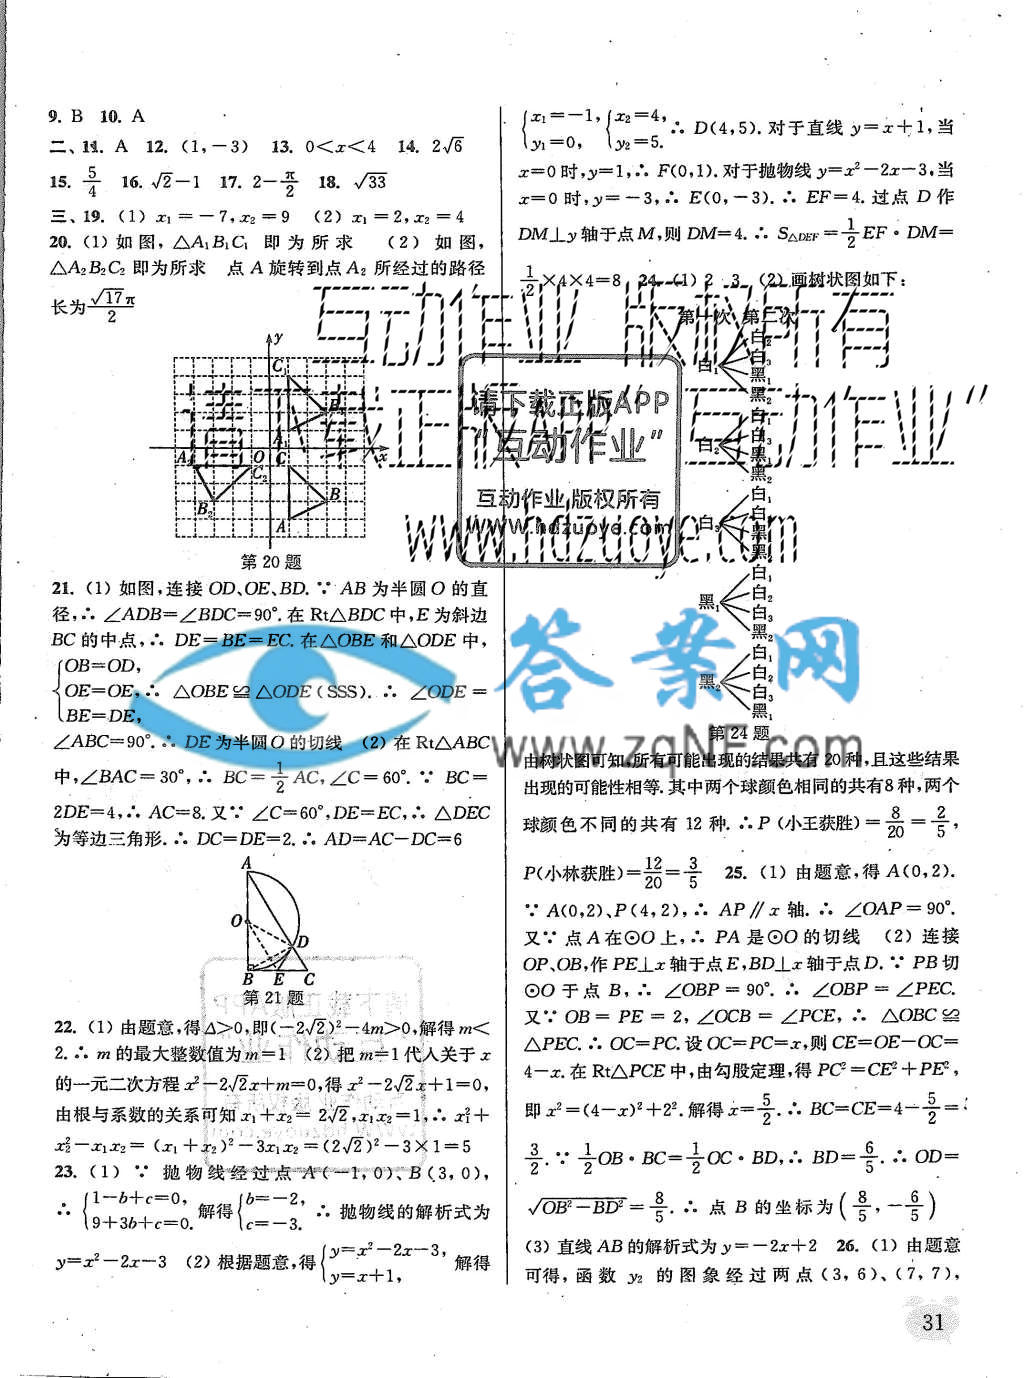 9. B 10. A
二、11. A 12. (1,-3) 13. 0<x<4 14. 2√6
15. 5/4 16. √2-1 17. 2-π/2 18. √33
三、19. (1) x₁=-7,x₂=9 (2) x₁=2,x₂=4
20. (1) 如图,△A₁B₁C₁ 即为所求 (2) 如图,
△A₂B₂C₂ 即为所求 点 A 旋转到点 A₂ 所经过的路径
长为 √17π/2
第 20 题
21. (1) 如图,连接 OD、OE、BD. ∵ AB 为半圆 O 的直
径,∴ ∠ADB=∠BDC=90°. 在 Rt△BDC 中,E 为斜边
BC 的中点,∴ DE=BE=EC. 在△OBE 和△ODE 中,
OB=OD,
OE=OE,∴ △OBE≌△ODE(SSS). ∴ ∠ODE=
BE=DE,
∠ABC=90°. ∴ DE 为半圆 O 的切线 (2) 在 Rt△ABC
中,∠BAC=30°,∴ BC=1/2 AC,∠C=60°. ∵ BC=
2DE=4,∴ AC=8. 又∵ ∠C=60°,DE=EC,∴ △DEC
为等边三角形. ∴ DC=DE=2. ∴ AD=AC-DC=6
A
O
D
B E C
第 21 题
22. (1) 由题意,得 Δ>0,即(-2√2)²-4m>0,解得 m<
2. ∴ m 的最大整数值为 m=1 (2) 把 m=1 代入关于 x
的一元二次方程 x²-2√2x+m=0,得 x²-2√2x+1=0,
由根与系数的关系可知 x₁+x₂=2√2,x₁x₂=1,∴ x₁²+
x₂²-x₁x₂=(x₁+x₂)²-3x₁x₂=(2√2)²-3×1=5
23. (1) ∵ 抛物线经过点 A(-1,0)、B(3,0),
∴ {1-b+c=0, 9+3b+c=0. 解得 {b=-2, c=-3. ∴ 抛物线的解析式为
y=x²-2x-3 (2) 根据题意,得 {y=x²-2x-3, y=x+1, 解得
{x₁=-1, y₁=0, {x₂=4, y₂=5. ∴ D(4,5). 对于直线 y=x+1,当
x=0 时,y=1,∴ F(0,1). 对于抛物线 y=x²-2x-3,当
x=0 时,y=-3,∴ E(0,-3). ∴ EF=4. 过点 D 作
DM⊥y 轴于点 M,则 DM=4. ∴ S△DEF=1/2 EF·DM=
1/2×4×4=8 24. (1) 2 3 (2) 画树状图如下:
第一次 第二次
白₁ 白₂ 白₃ 黑₁ 黑₂
白₂ 白₁ 白₃ 黑₁ 黑₂
白₃ 白₁ 白₂ 黑₁ 黑₂
黑₁ 白₁ 白₂ 白₃ 黑₂
黑₂ 白₁ 白₂ 白₃ 黑₁
第 24 题
由树状图可知,所有可能出现的结果共有 20 种,且这些结果
出现的可能性相等. 其中两个球颜色相同的共有 8 种,两个
球颜色不同的共有 12 种. ∴ P(小王获胜)=8/20=2/5,
P(小林获胜)=12/20=3/5 25. (1) 由题意,得 A(0,2).
∵ A(0,2)、P(4,2),∴ AP∥x 轴. ∴ ∠OAP=90°.
又∵ 点 A 在⊙O 上,∴ PA 是⊙O 的切线 (2) 连接
OP、OB,作 PE⊥x 轴于点 E,BD⊥x 轴于点 D. ∵ PB 切
⊙O 于点 B,∴ ∠OBP=90°. ∴ ∠OBP=∠PEC.
又∵ OB=PE=2,∠OCB=∠PCE,∴ △OBC≌
△PEC. ∴ OC=PC. 设 OC=PC=x,则 CE=OE-OC=
4-x. 在 Rt△PCE 中,由勾股定理,得 PC²=CE²+PE²,
即 x²=(4-x)²+2². 解得 x=5/2. ∴ BC=CE=4-5/2=
3/2. ∵ 1/2 OB·BC=1/2 OC·BD,∴ BD=6/5. ∴ OD=
√(OB²-BD²)=8/5. ∴ 点 B 的坐标为 (8/5,-6/5)
(3) 直线 AB 的解析式为 y=-2x+2 26. (1) 由题意
可得,函数 y₂ 的图象经过两点(3,6)、(7,7),
31
互动作业 版权所有
请下载正版APP“互动作业”
www.hdzuoye.com
请下载正版APP
“互动作业”
互动作业 版权所有
www.hdzuoye.com
答案网
www.zqNF.com